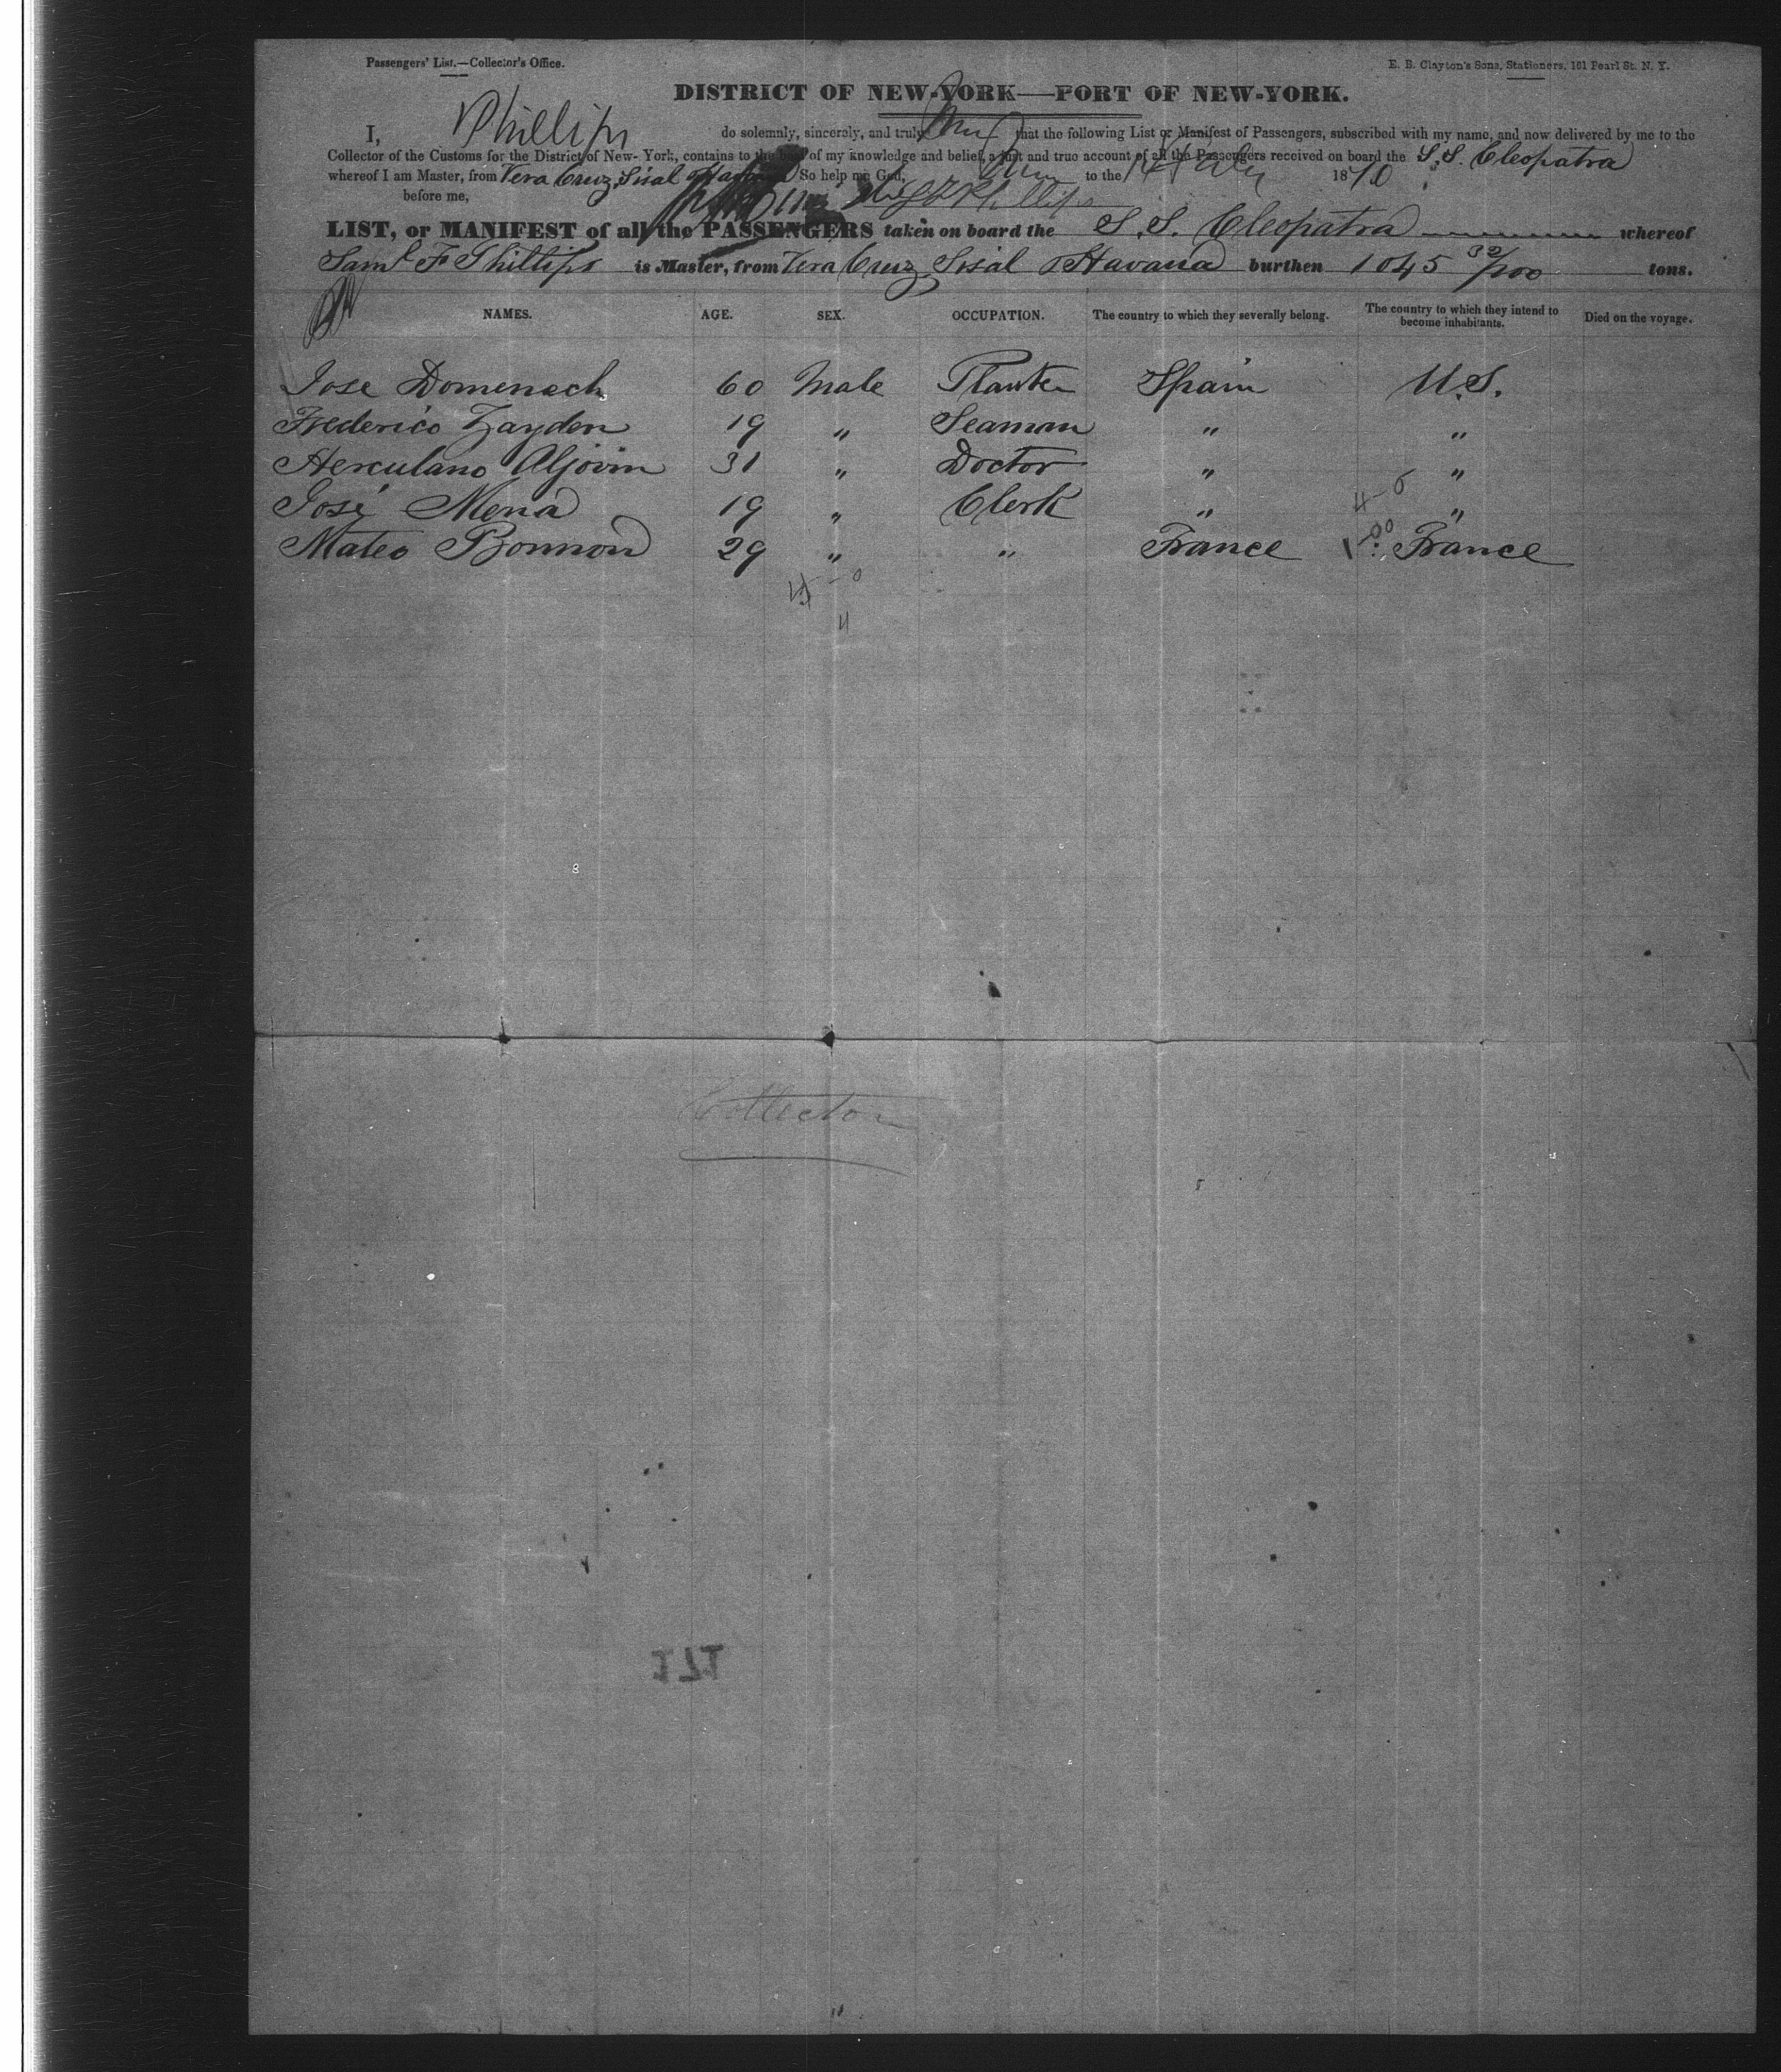 Passengers' List.—Collector's Office.
E. B. Clayton's Sons, Stationers, 161 Pearl St. N. Y.
DISTRICT OF NEW-YORK—PORT OF NEW-YORK.
I, Phillips do solemnly, sincerely, and truly that the following List or Manifest of Passengers, subscribed with my name, and now delivered by me to the
Collector of the Customs for the District of New-York, contains to the best of my knowledge and belief, a just and true account of all the Passengers received on board the S.S. Cleopatra
whereof I am Master, from Vera Cruz, Sisal & Havana So help me God, to the July 1870
before me, Phillips
LIST, or MANIFEST of all the PASSENGERS taken on board the S.S. Cleopatra whereof
Saml F Phillips is Master, from Vera Cruz, Sisal & Havana burthen 1045 32/100 tons.
NAMES. AGE. SEX. OCCUPATION. The country to which they severally belong. The country to which they intend to become inhabitants. Died on the voyage.
Jose Domenech 60 Male Planter Spain U.S.
Frederico Zayden 19 " Seaman " "
Herculano Aljovin 31 " Doctor " "
José Mena 19 " Clerk " "
Mateo Bonnon 29 " " France France
4-0
4
Collector
171